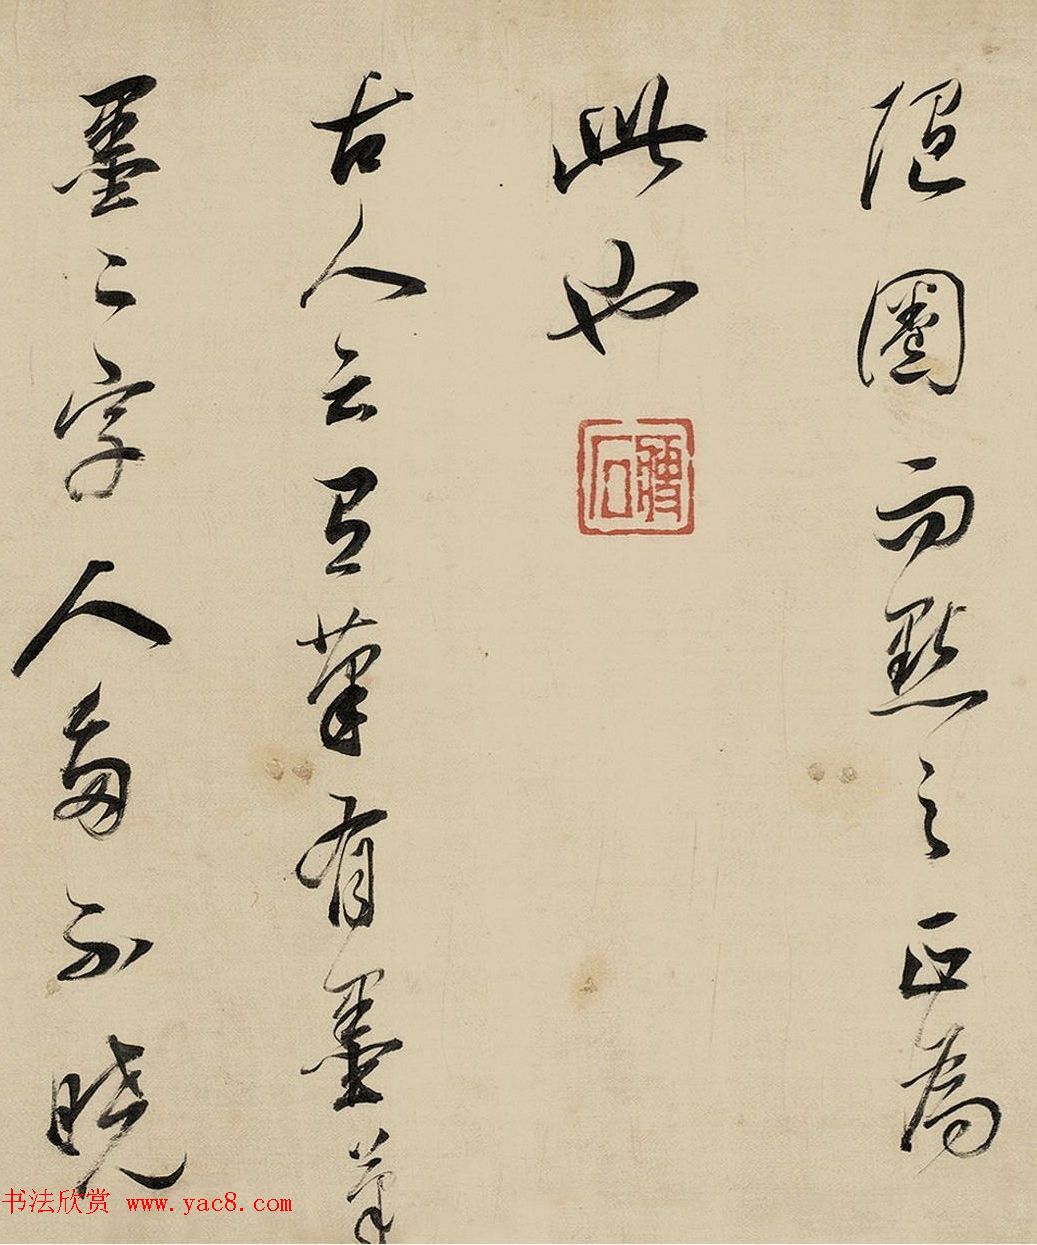 隨圈而點之正為
此也
古人云有筆有墨筆
墨二字人多不曉
书法欣赏 www.yac8.com